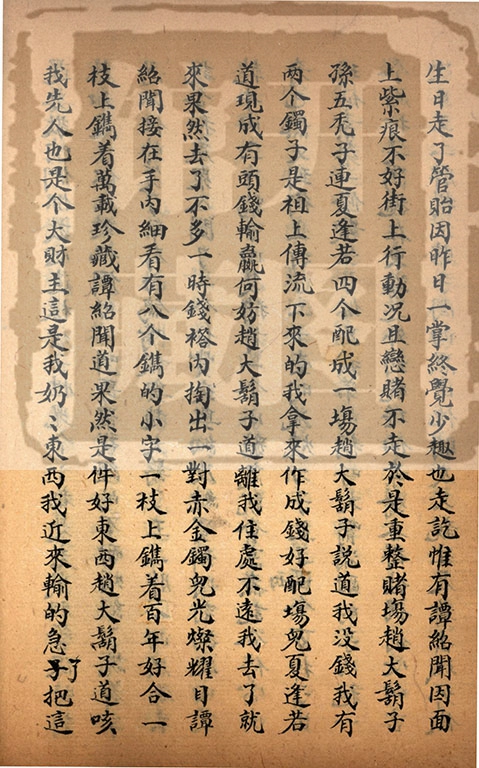 生日走了管貽因昨日一掌終覺少趣也走訖惟有譚紹聞因面
上紫痕不好街上行動况且戀賭不走於是重整賭塲趙大鬍子
孫五禿子連夏逢若四个配成一塲趙大鬍子説道我没錢我有
兩个鐲子是祖上傳流下來的我拿來作成錢好配塲兒夏逢若
道現成有頭錢輸贏何妨趙大鬍子道離我住處不遠我去了就
來果然去了不多一時錢褡内掏出一對赤金鐲兒光燦耀目譚
紹聞接在手内細看有八个鐫的小字一枝上鐫着百年好合一
枝上鐫着萬載珍藏譚紹聞道果然是件好東西趙大鬍子道咳
我先人也是个大財主這是我奶〻東西我近來輸的急了把這